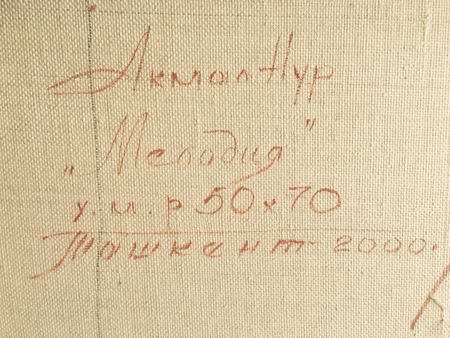 Акмал Нур
„Мелодия"
х.м. р 50 х 70
Ташкент - 2000.